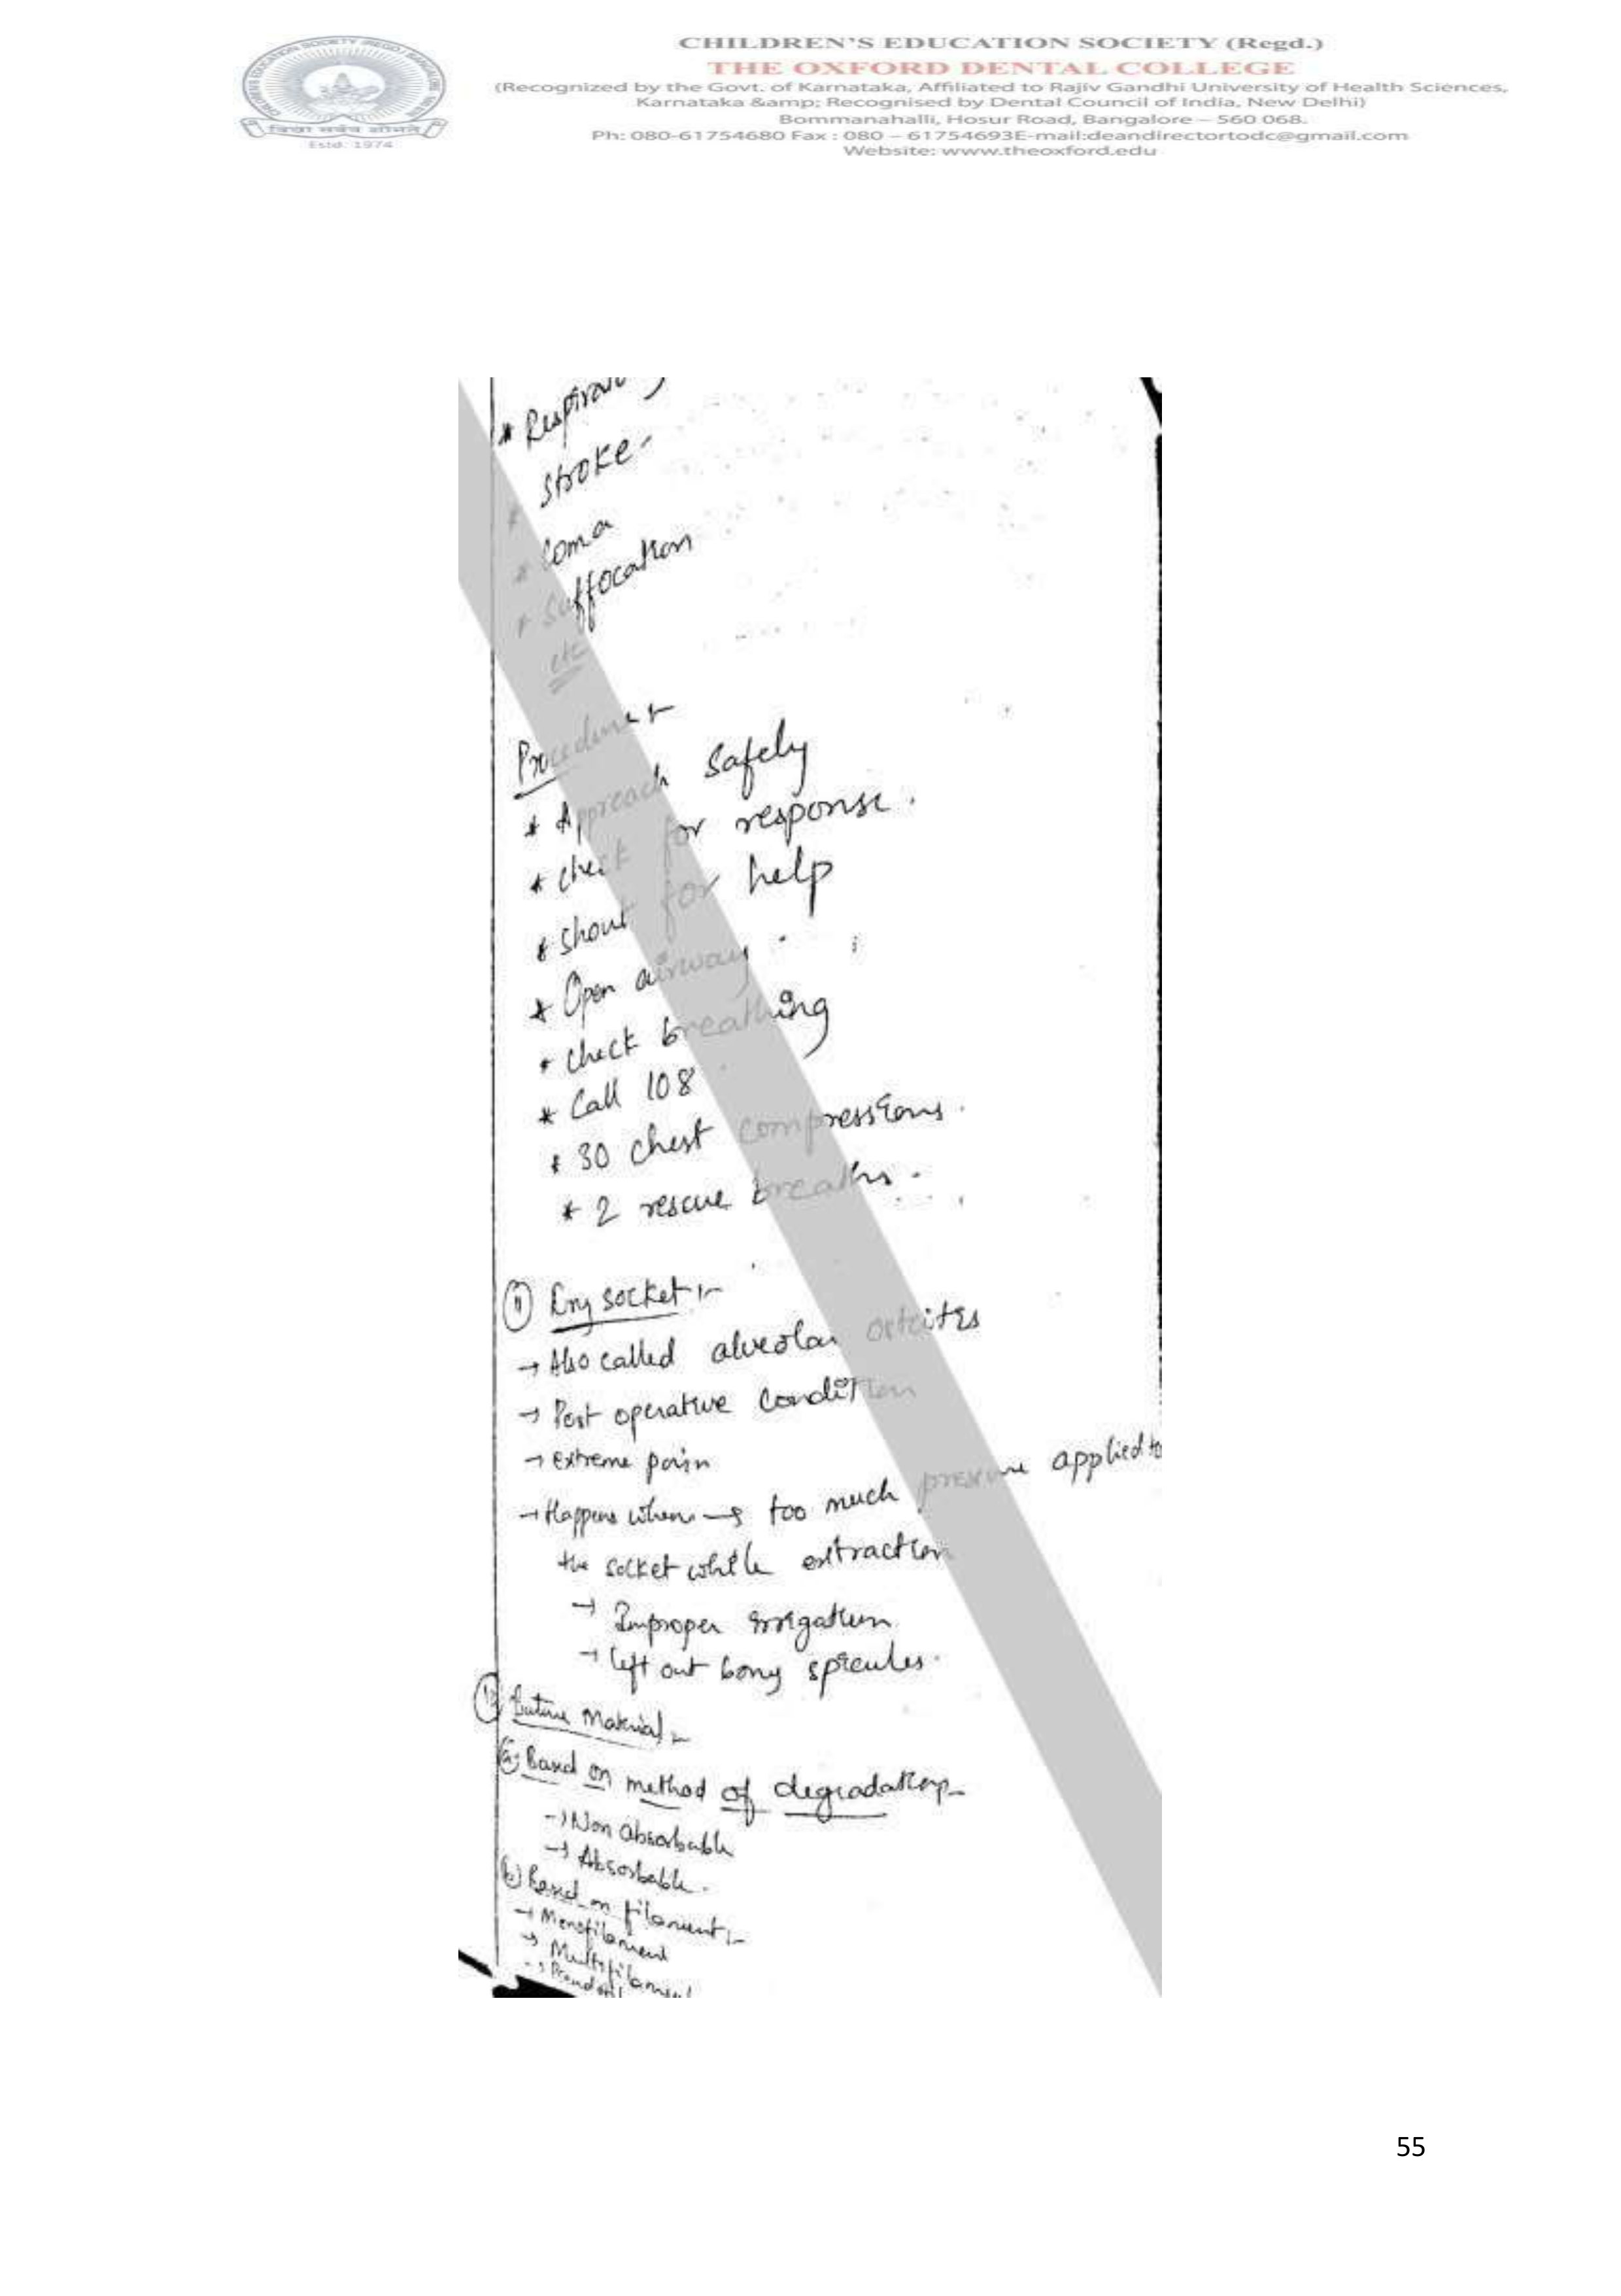 CHILDREN'S EDUCATION SOCIETY (Regd.)
THE OXFORD DENTAL COLLEGE
(Recognized by the Govt. of Karnataka, Affiliated to Rajiv Gandhi University of Health Sciences,
Karnataka &amp; Recognised by Dental Council of India, New Delhi)
Bommanahalli, Hosur Road, Bangalore – 560 068.
Ph: 080-61754680 Fax : 080 – 61754693E-mail:deandirectortodc@gmail.com
Website: www.theoxford.edu
Estd: 1974
* 
* Stroke-
* Coma
* Suffocation
etc
Procedure:-
* Approach safely
* check for response.
* Shout for help
* Open airway.
* check breathing
* Call 108
* 30 chest compressions.
* 2 rescue breaths.
11 Dry socket :-
→ Also called alveolar osteitis
→ Post operative condition
→ Extreme pain
→ Happens when → too much pressure applied to
the socket while extraction
→ Improper irrigation
→ left out bony spicules.
Suture Material :-
(a) Based on method of degradation-
→ Non absorbable
→ Absorbable.
(b) Based on filament :-
→ Monofilament
→ Multifilament
55